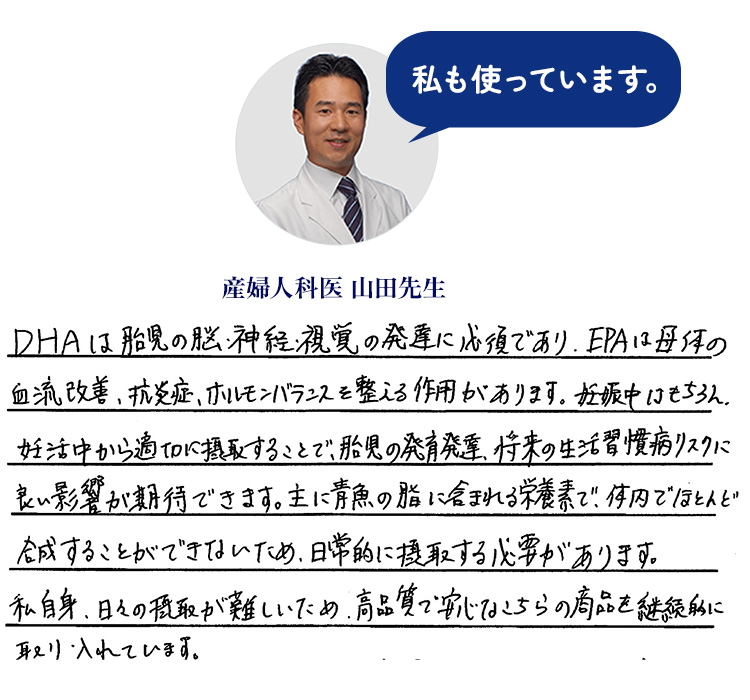 私も使っています。
産婦人科医 山田先生
DHAは胎児の脳・神経・視覚の発達に必須であり、EPAは母体の
血流改善、抗炎症、ホルモンバランスを整える作用があります。妊娠中はもちろん、
妊活中から適切に摂取することで、胎児の発育発達、将来の生活習慣病リスクに
良い影響が期待できます。主に青魚の脂に含まれる栄養素で、体内でほとんど
合成することができないため、日常的に摂取する必要があります。
私自身、日々の摂取が難しいため、高品質で安心なこちらの商品を継続的に
取り入れています。